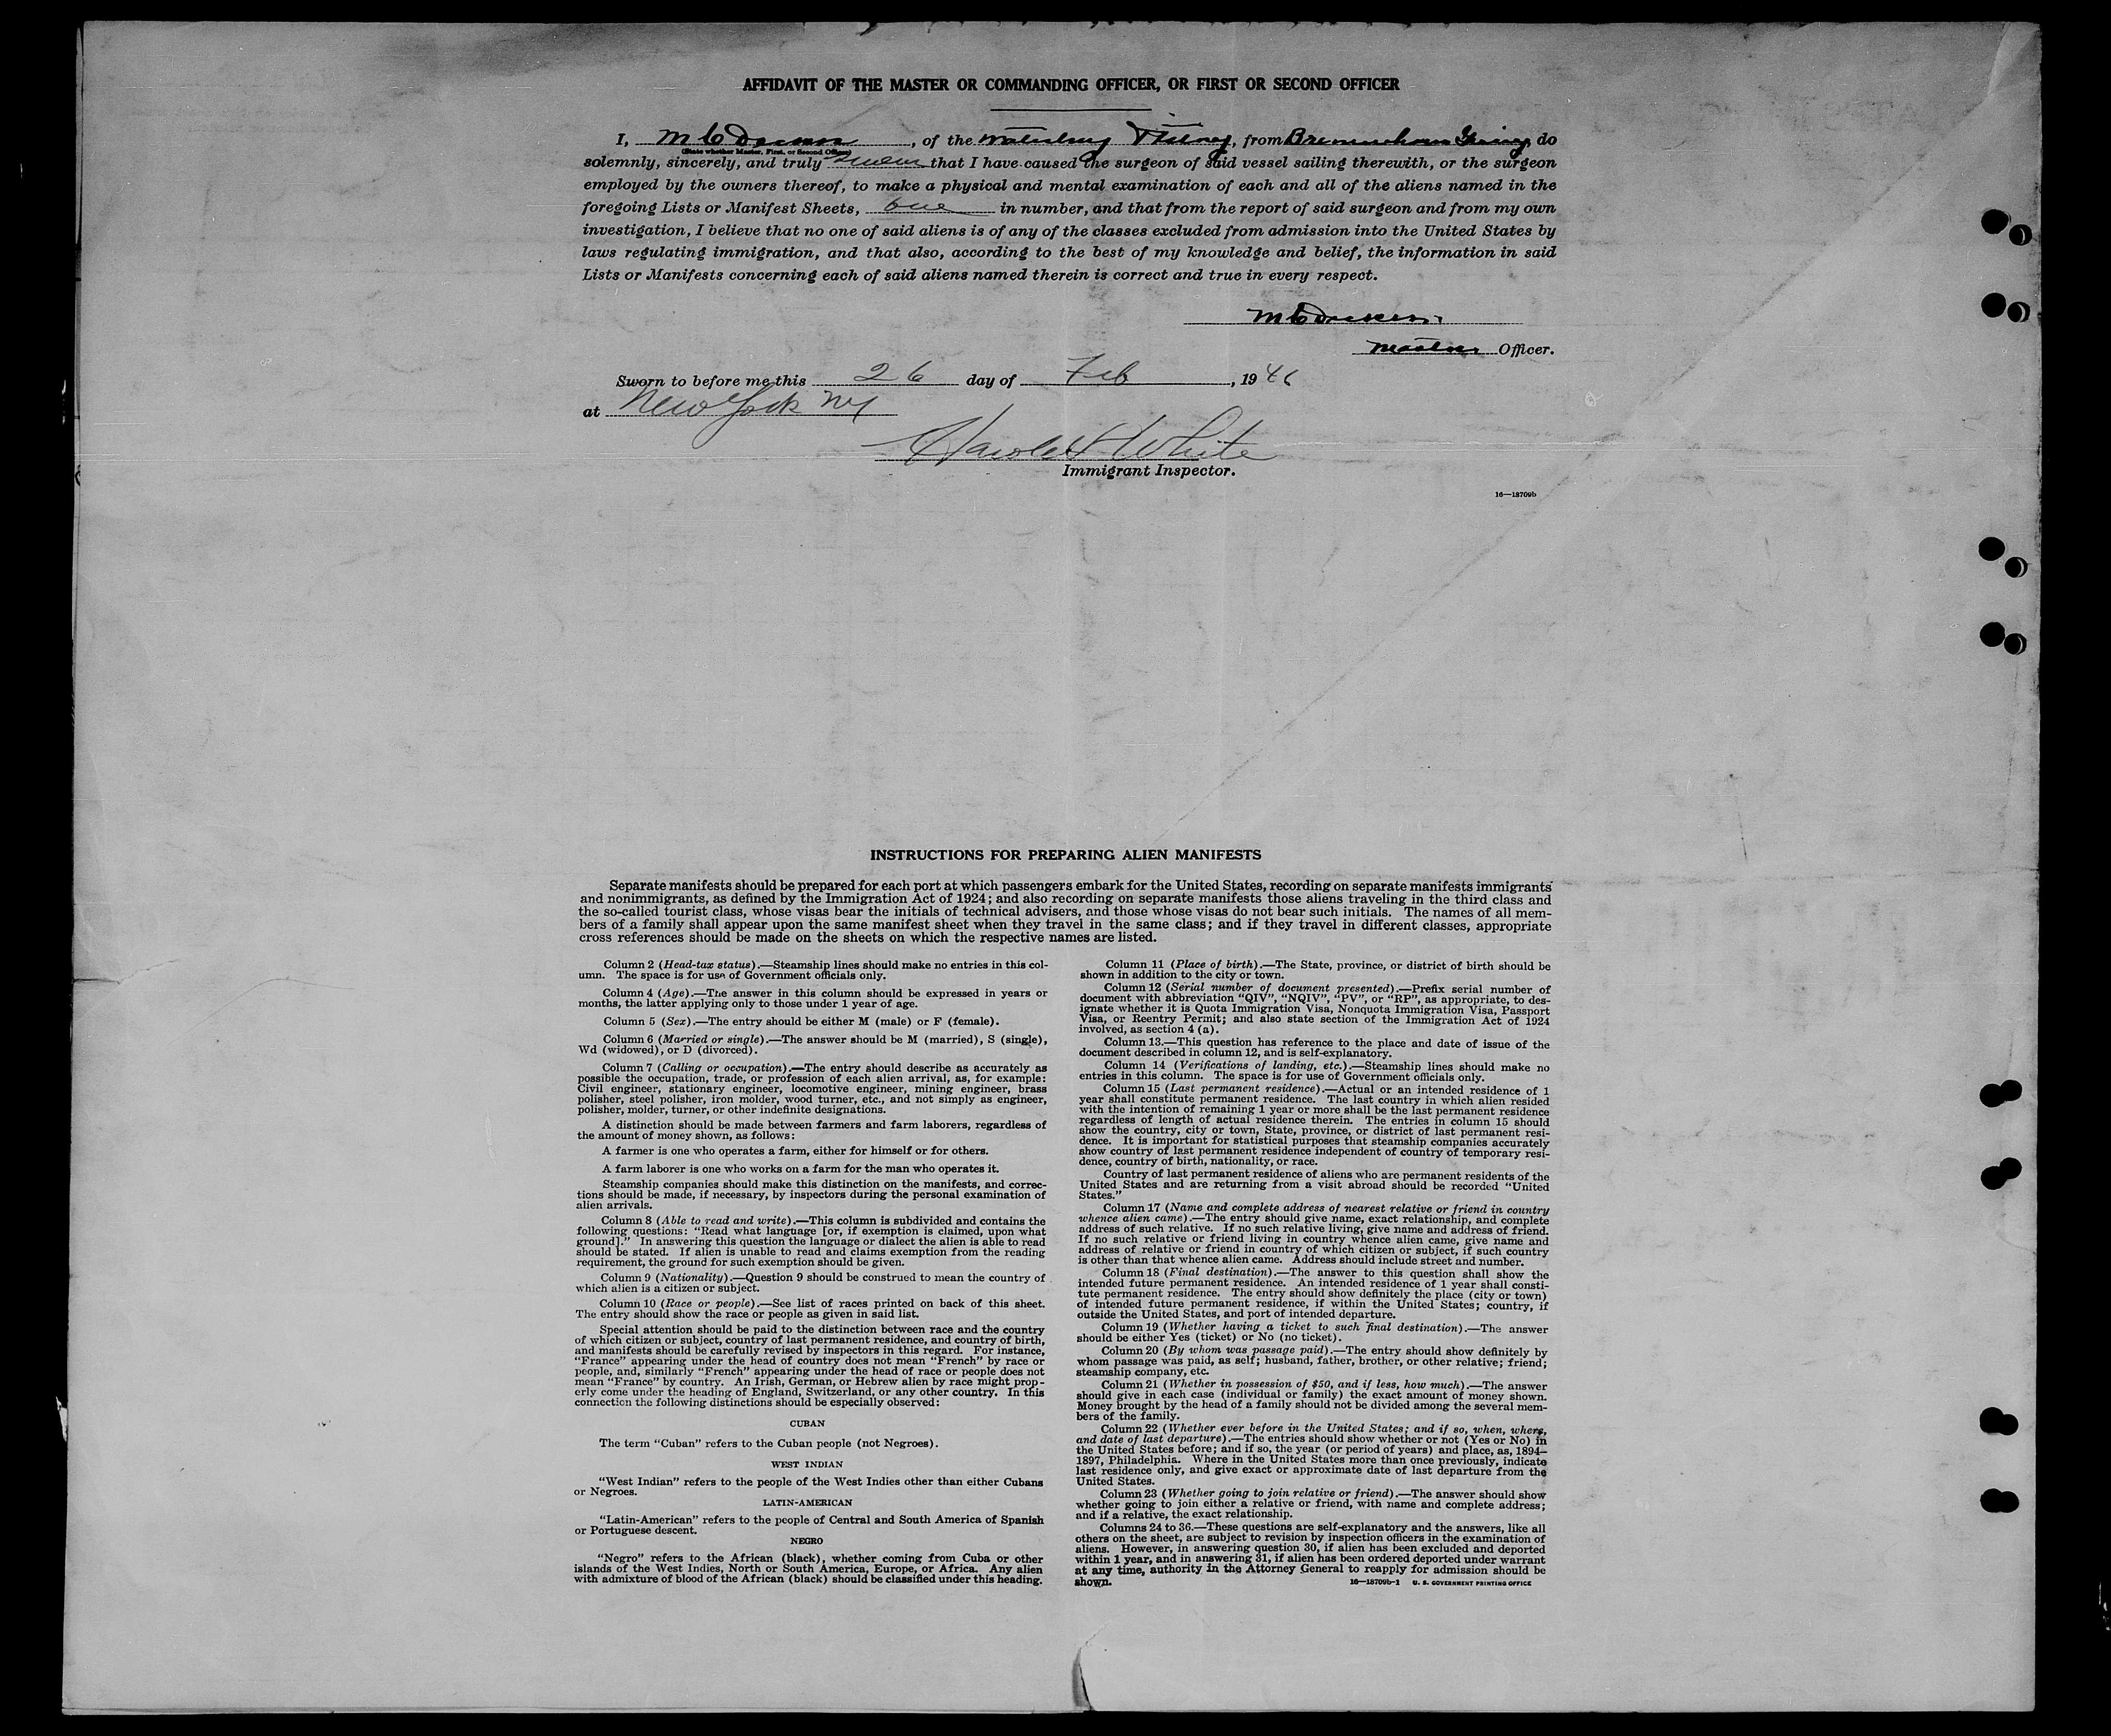 AFFIDAVIT OF THE MASTER OR COMMANDING OFFICER, OR FIRST OR SECOND OFFICER
I, , of the Victory, from do
(State whether Master, First, or Second Officer)
solemnly, sincerely, and truly swear that I have caused the surgeon of said vessel sailing therewith, or the surgeon
employed by the owners thereof, to make a physical and mental examination of each and all of the aliens named in the
foregoing Lists or Manifest Sheets, one in number, and that from the report of said surgeon and from my own
investigation, I believe that no one of said aliens is of any of the classes excluded from admission into the United States by
laws regulating immigration, and that also, according to the best of my knowledge and belief, the information in said
Lists or Manifests concerning each of said aliens named therein is correct and true in every respect.
Master Officer.
Sworn to before me this 26 day of Feb, 1946
at New York NY
Harold White
Immigrant Inspector.
16—18709b
INSTRUCTIONS FOR PREPARING ALIEN MANIFESTS
Separate manifests should be prepared for each port at which passengers embark for the United States, recording on separate manifests immigrants
and nonimmigrants, as defined by the Immigration Act of 1924; and also recording on separate manifests those aliens traveling in the third class and
the so-called tourist class, whose visas bear the initials of technical advisers, and those whose visas do not bear such initials. The names of all mem-
bers of a family shall appear upon the same manifest sheet when they travel in the same class; and if they travel in different classes, appropriate
cross references should be made on the sheets on which the respective names are listed.
Column 2 (Head-tax status).—Steamship lines should make no entries in this col-
umn. The space is for use of Government officials only.
Column 4 (Age).—The answer in this column should be expressed in years or
months, the latter applying only to those under 1 year of age.
Column 5 (Sex).—The entry should be either M (male) or F (female).
Column 6 (Married or single).—The answer should be M (married), S (single),
Wd (widowed), or D (divorced).
Column 7 (Calling or occupation).—The entry should describe as accurately as
possible the occupation, trade, or profession of each alien arrival, as, for example:
Civil engineer, stationary engineer, locomotive engineer, mining engineer, brass
polisher, steel polisher, iron molder, wood turner, etc., and not simply as engineer,
polisher, molder, turner, or other indefinite designations.
A distinction should be made between farmers and farm laborers, regardless of
the amount of money shown, as follows:
A farmer is one who operates a farm, either for himself or for others.
A farm laborer is one who works on a farm for the man who operates it.
Steamship companies should make this distinction on the manifests, and correc-
tions should be made, if necessary, by inspectors during the personal examination of
alien arrivals.
Column 8 (Able to read and write).—This column is subdivided and contains the
following questions: "Read what language [or, if exemption is claimed, upon what
ground]." In answering this question the language or dialect the alien is able to read
should be stated. If alien is unable to read and claims exemption from the reading
requirement, the ground for such exemption should be given.
Column 9 (Nationality).—Question 9 should be construed to mean the country of
which alien is a citizen or subject.
Column 10 (Race or people).—See list of races printed on back of this sheet.
The entry should show the race or people as given in said list.
Special attention should be paid to the distinction between race and the country
of which citizen or subject, country of last permanent residence, and country of birth,
and manifests should be carefully revised by inspectors in this regard. For instance,
"France" appearing under the head of country does not mean "French" by race or
people, and, similarly "French" appearing under the head of race or people does not
mean "France" by country. An Irish, German, or Hebrew alien by race might prop-
erly come under the heading of England, Switzerland, or any other country. In this
connection the following distinctions should be especially observed:
CUBAN
The term "Cuban" refers to the Cuban people (not Negroes).
WEST INDIAN
"West Indian" refers to the people of the West Indies other than either Cubans
or Negroes.
LATIN-AMERICAN
"Latin-American" refers to the people of Central and South America of Spanish
or Portuguese descent.
NEGRO
"Negro" refers to the African (black), whether coming from Cuba or other
islands of the West Indies, North or South America, Europe, or Africa. Any alien
with admixture of blood of the African (black) should be classified under this heading.
Column 11 (Place of birth).—The State, province, or district of birth should be
shown in addition to the city or town.
Column 12 (Serial number of document presented).—Prefix serial number of
document with abbreviation "QIV", "NQIV", "PV", or "RP", as appropriate, to des-
ignate whether it is Quota Immigration Visa, Nonquota Immigration Visa, Passport
Visa, or Reentry Permit; and also state section of the Immigration Act of 1924
involved, as section 4 (a).
Column 13.—This question has reference to the place and date of issue of the
document described in column 12, and is self-explanatory.
Column 14 (Verifications of landing, etc.).—Steamship lines should make no
entries in this column. The space is for use of Government officials only.
Column 15 (Last permanent residence).—Actual or an intended residence of 1
year shall constitute permanent residence. The last country in which alien resided
with the intention of remaining 1 year or more shall be the last permanent residence
regardless of length of actual residence therein. The entries in column 15 should
show the country, city or town, State, province, or district of last permanent resi-
dence. It is important for statistical purposes that steamship companies accurately
show country of last permanent residence independent of country of temporary resi-
dence, country of birth, nationality, or race.
Country of last permanent residence of aliens who are permanent residents of the
United States and are returning from a visit abroad should be recorded "United
States."
Column 17 (Name and complete address of nearest relative or friend in country
whence alien came).—The entry should give name, exact relationship, and complete
address of such relative. If no such relative living, give name and address of friend.
If no such relative or friend living in country whence alien came, give name and
address of relative or friend in country of which citizen or subject, if such country
is other than that whence alien came. Address should include street and number.
Column 18 (Final destination).—The answer to this question shall show the
intended future permanent residence. An intended residence of 1 year shall consti-
tute permanent residence. The entry should show definitely the place (city or town)
of intended future permanent residence, if within the United States; country, if
outside the United States, and port of intended departure.
Column 19 (Whether having a ticket to such final destination).—The answer
should be either Yes (ticket) or No (no ticket).
Column 20 (By whom was passage paid).—The entry should show definitely by
whom passage was paid, as self; husband, father, brother, or other relative; friend;
steamship company, etc.
Column 21 (Whether in possession of $50, and if less, how much).—The answer
should give in each case (individual or family) the exact amount of money shown.
Money brought by the head of a family should not be divided among the several mem-
bers of the family.
Column 22 (Whether ever before in the United States; and if so, when, where,
and date of last departure).—The entries should show whether or not (Yes or No) in
the United States before; and if so, the year (or period of years) and place, as, 1894–
1897, Philadelphia. Where in the United States more than once previously, indicate
last residence only, and give exact or approximate date of last departure from the
United States.
Column 23 (Whether going to join relative or friend).—The answer should show
whether going to join either a relative or friend, with name and complete address;
and if a relative, the exact relationship.
Columns 24 to 36.—These questions are self-explanatory and the answers, like all
others on the sheet, are subject to revision by inspection officers in the examination of
aliens. However, in answering question 30, if alien has been excluded and deported
within 1 year, and in answering 31, if alien has been ordered deported under warrant
at any time, authority in the Attorney General to reapply for admission should be
shown.
16—18709b-1 U. S. GOVERNMENT PRINTING OFFICE